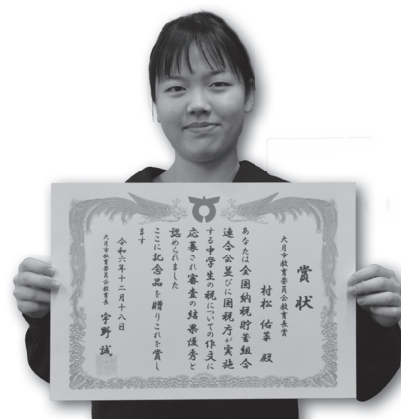 賞状
大月市教育委員会教育長賞
村松 佑菜 殿
あなたは全国納税貯蓄組合
連合会並びに国税庁が実施
する中学生の税についての作文に
応募され審査の結果優秀と
認められました
ここに記念品を贈りこれを賞し
ます
令和六年十二月十八日
大月市教育委員会教育長 宇野 誠